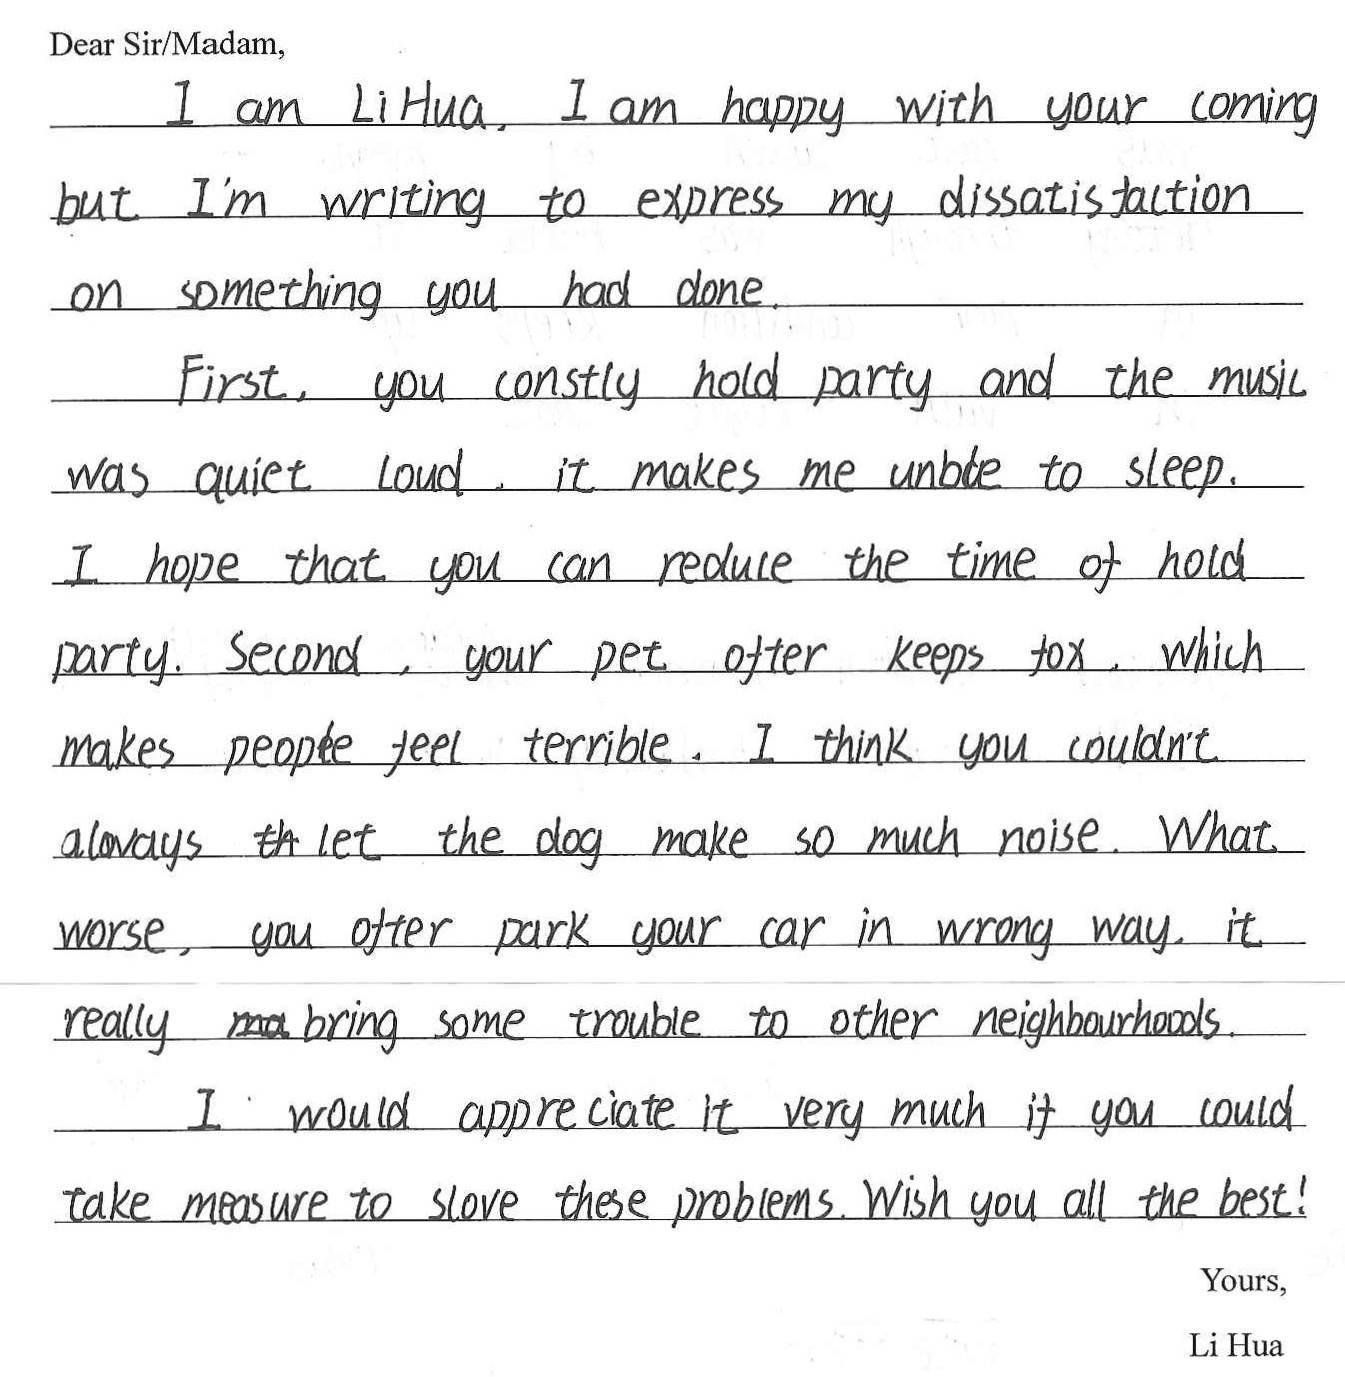 Dear Sir/Madam,
I am Li Hua. I am happy with your coming
but I'm writing to express my dissatisfaction
on something you had done.
First, you constly hold party and the music
was quiet loud. it makes me unble to sleep.
I hope that you can reduce the time of hold
party. Second, your pet ofter keeps fox. which
makes people feel terrible. I think you couldn't
always let the dog make so much noise. What
worse, you ofter park your car in wrong way. it
really bring some trouble to other neighbourhoods.
I would appreciate it very much if you could
take measure to slove these problems. Wish you all the best!
Yours,
Li Hua